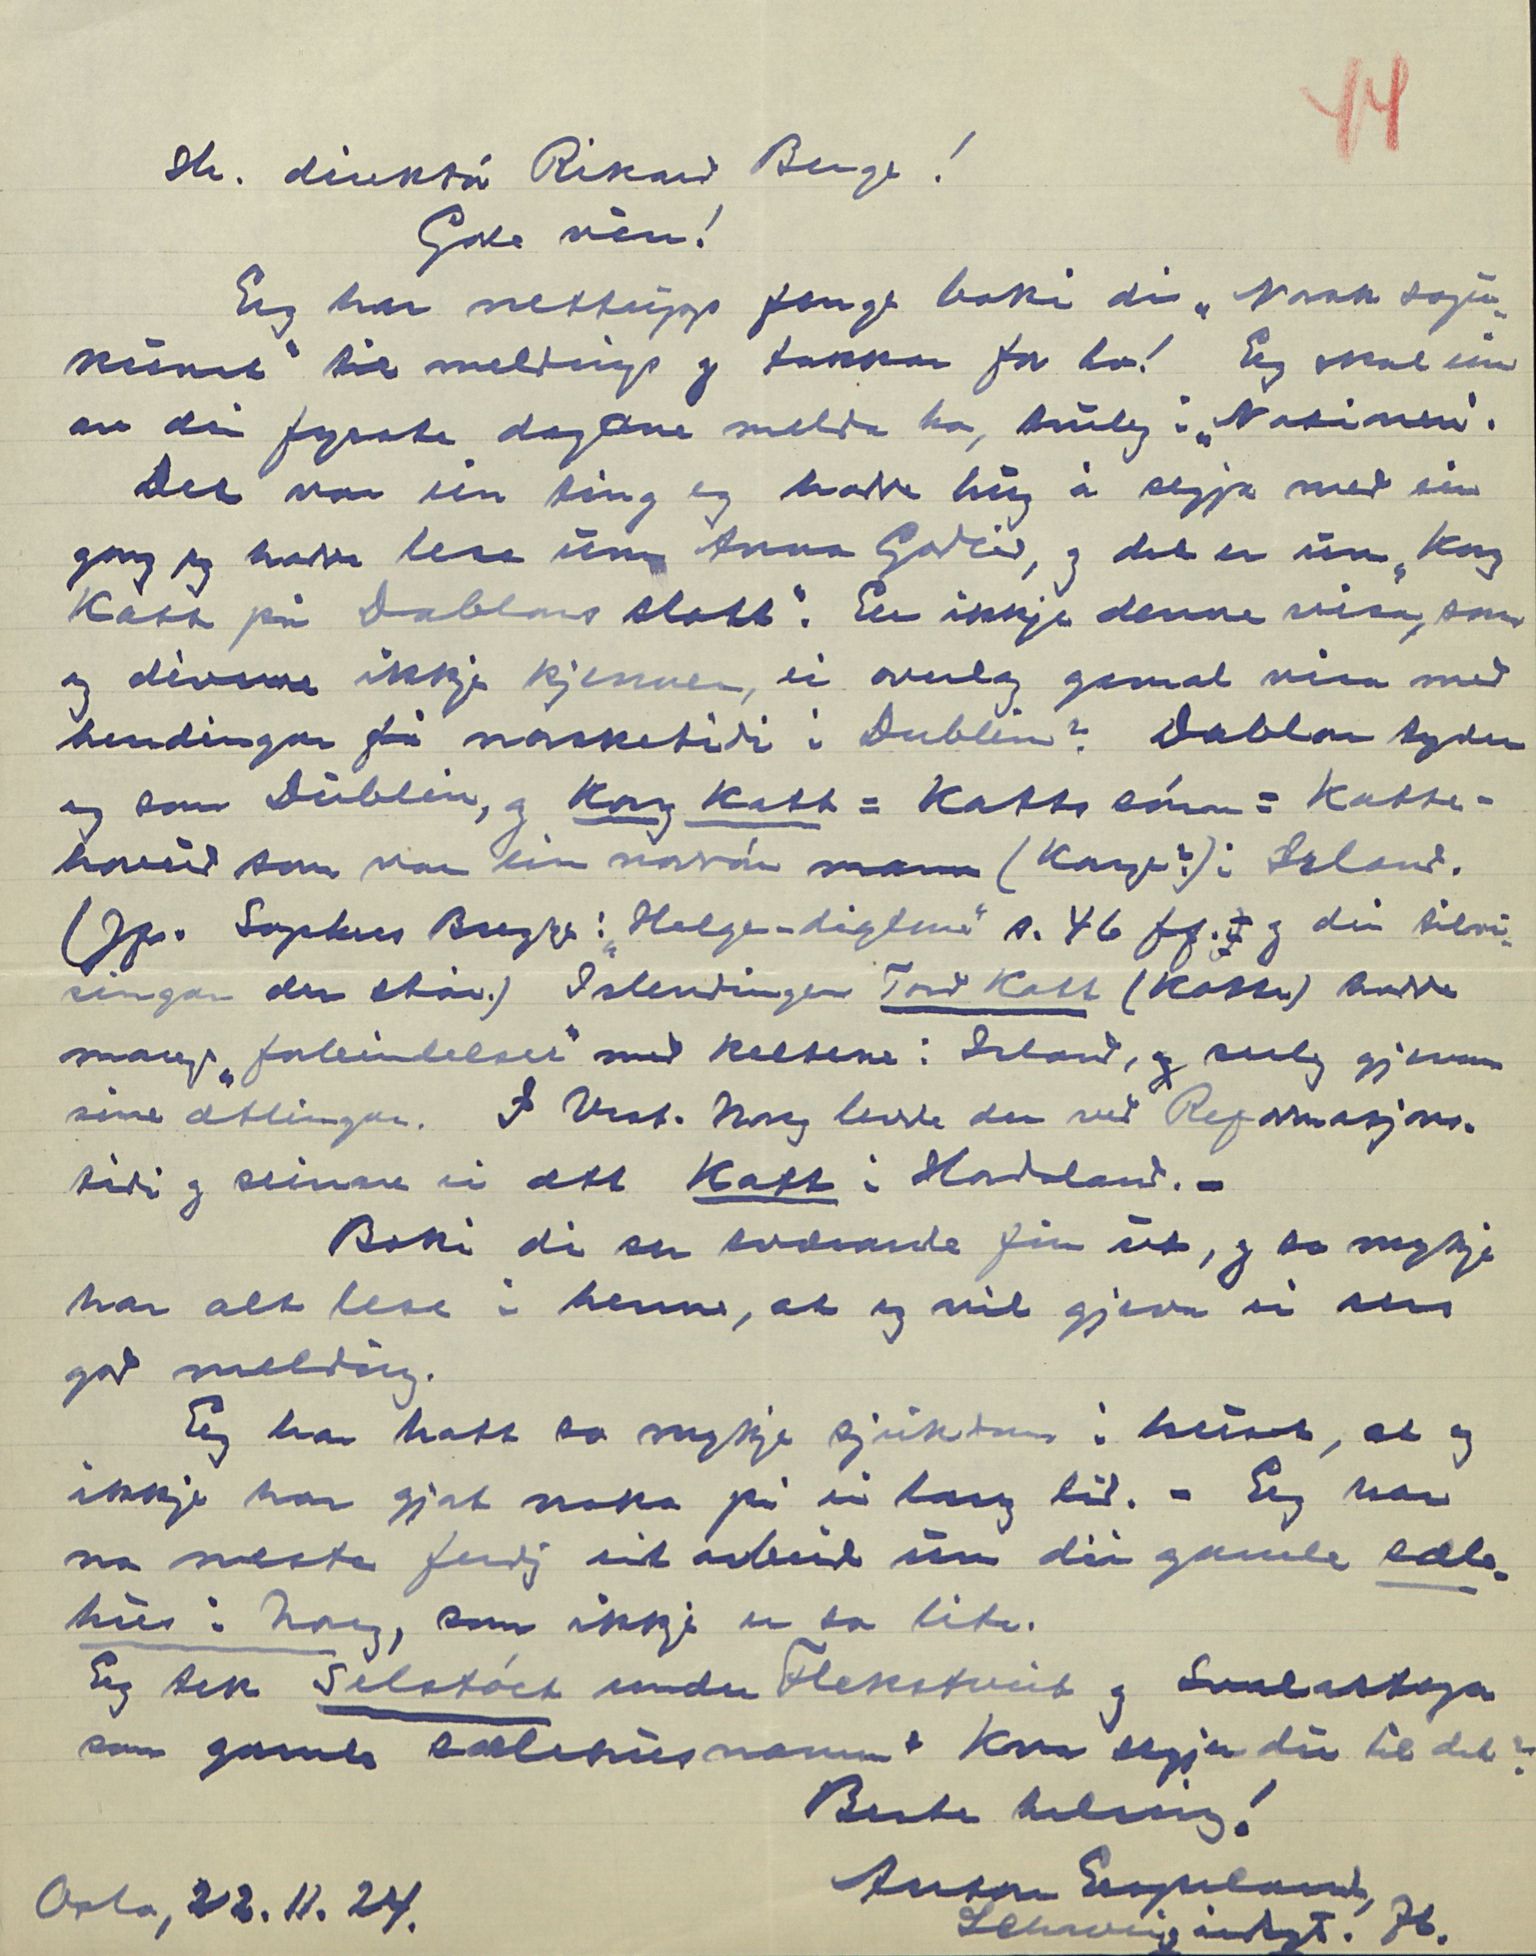 44
Hr. direktør Rikard Berge!
Gode ven!
Eg har nettupp fenge boki di „Norsk sogu-
kunst" til meldings og takkar for ho! Eg skal ein
av dei fyrste dagane melda ho, truleg i „Nationen".
Det var ein ting eg hadde hug å segja med ein
gong eg hadde lese um Anna Godlid, og det er um „Kong
Katt på Dablans slott". Er ikkje denne visa, som
eg diverre ikkje kjenner, ei ovuleg gamal visa med
hendingar frå norsketidi i Dublin? Dablan tyder
eg som Dublin, og Kong Katt = Katts sónn = Katte-
hovud som var ein norrón mann (Konge?) i Irland.
(Jfr. Sophus Bugge: „Helge-digtene" s. 46 ff. og dei tilvi-
singar der står.) Islendingen Tord Katt (Kattr) hadde
mange „forbindelser" med keltene i Irland, og serleg gjenom
sine ætlingar. I Vest-Noreg levde der ved Reformasjons-
tidi og seinare ei ætt Katt i Hordaland. -
Boki di ser sværande fin ut, og so mykje
har alt lese i henne, at eg vil gjeva ei sers
god melding.
Eg har hatt so mykje sjukdom i huset, at eg
ikkje har gjort noko på ei lang tid. - Eg har
no neste ferdig eit arbeid um dei gamle sæle-
hus i Noreg, som ikkje er so lite.
Eg tek Selstóct under Flekstveit og Svalastoga
som gamle sælehusnamn. Kva segjer du til det?
Beste helsing!
Anton Espeland,
Oslo, 22.11.24.